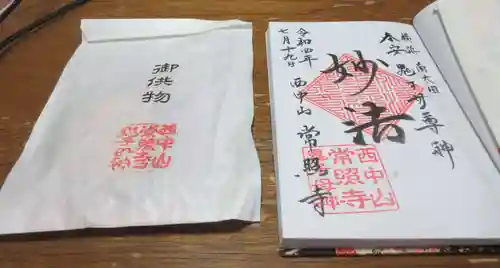 御供物
西中山
常照寺
横浜
南太田
奉安
鬼子母尊神
妙法
令和四年
七月十九日
西中山
常照寺
西中山
常照寺
鬼子母神